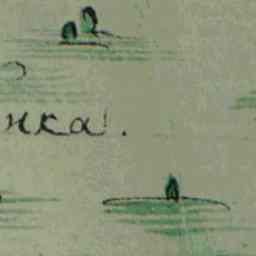 нка.